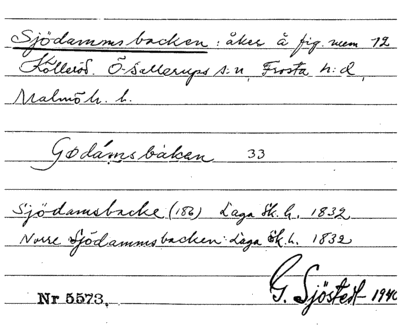 Sjödammsbacken: åker å fig. num 12
Kölleröd. Ö. Sallerups s:n, Frosta h:d,
Malmöh. l.
Godámsbàken 33
Sjödamsbacke (186) Laga Sk. h. 1832
Norre Sjödammsbacken: Laga Sk. h. 1832
Nr 5573. G. Sjöstedt 1940